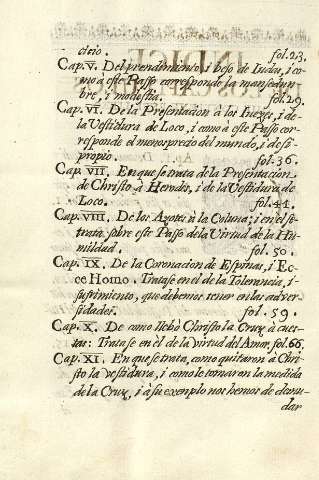 cicio. fol.23.
Cap. V. Del prendimiento, i beso de Iudas, i co-
mo à este Passo corresponde la mansedum
bre, i molestia. fol.29.
Cap. VI. De la Presentacion à los Iuezes, i de
la Vestidura de Loco, i como à este Passo cor-
responde el menosprecio del mundo, i de si
propio. fol.36.
Cap. VII. En que se trata de la Presentacion
de Christo à Herodes, i de la Vestidura de
Loco. fol.44.
Cap. VIII. De los Azotes à la Coluna; i en el se
trata sobre este Passo de la Virtud de la Hu
mildad. fol. 50.
Cap. IX. De la Coronacion de Espinas, i Ec-
ce Homo. Tratase en el de la Tolerancia, i
sufrimiento, que debemos tener en las adver
sidades. fol. 59.
Cap. X. De como llebò Christo la Cruz à cues
tas: Trata se en èl de la virtud del Amor, fol.66.
Cap. XI. En que se trata, como quitaron à Chri-
sto la vestidura, i como le tomaron la medida
de la Cruz, i à su exemplo nos hemos de desnu-
dar